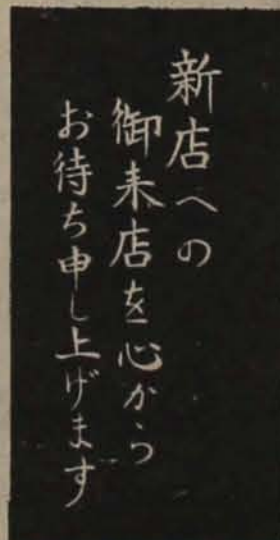 新店への
御来店を心から
お待ち申し上げます